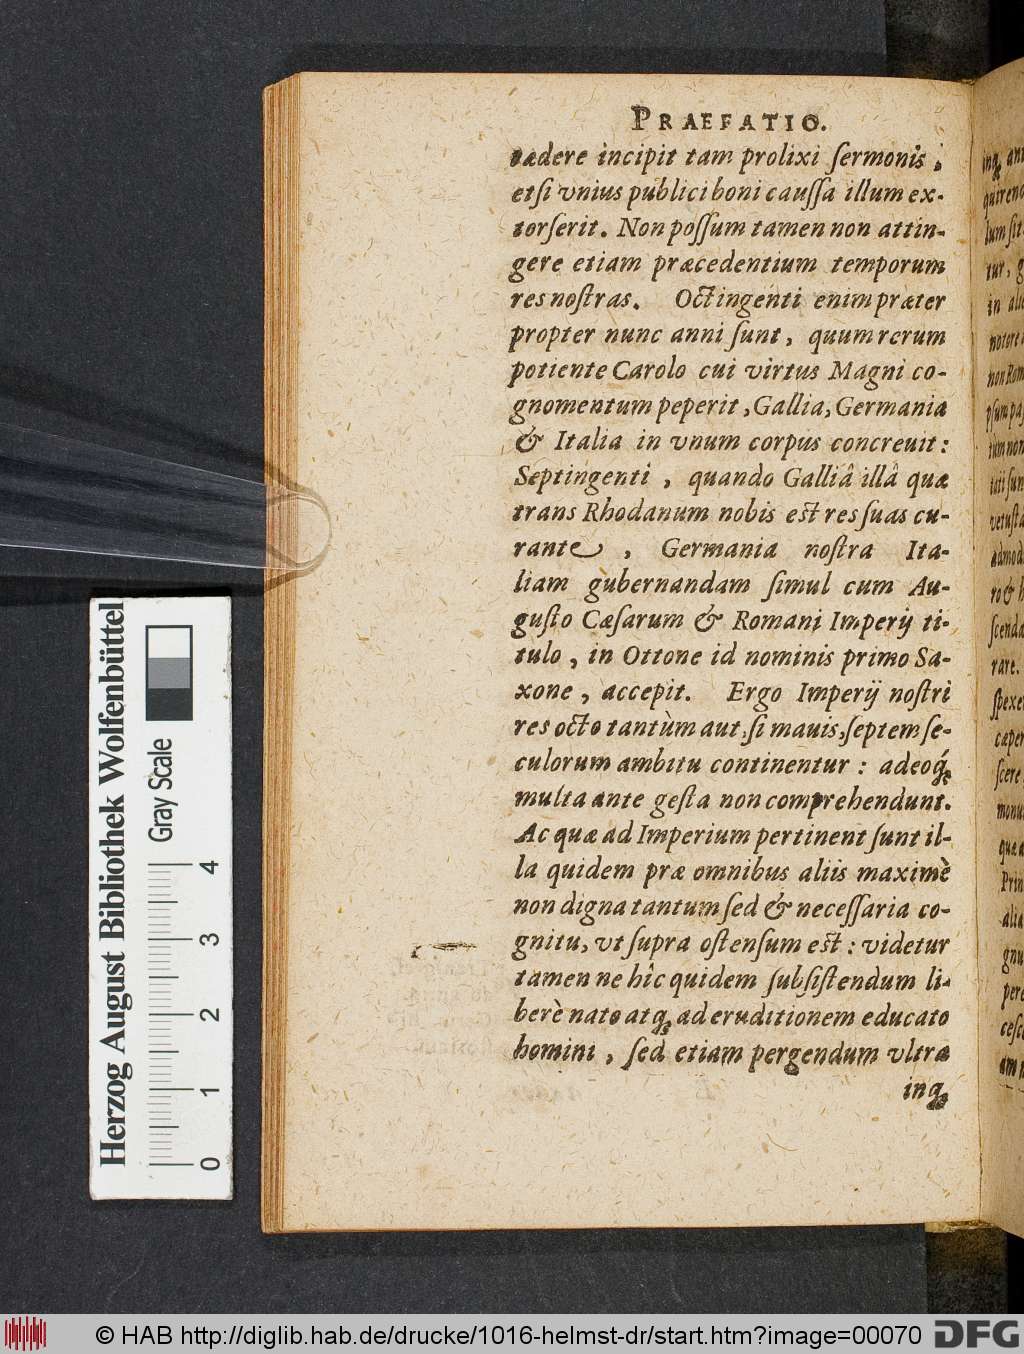 PRAEFATIO.
tædere incipit tam prolixi ſermonis ;
etſi vnius publici boni cauſſa illum ex-
torſerit. Non poſſum tamen non attin-
gere etiam præcedentium temporum
res noſtras. Octingenti enim præter
propter nunc anni ſunt, quum rerum
potiente Carolo cui virtus Magni co-
gnomentum peperit, Gallia, Germania
& Italia in vnum corpus concreuit:
Septingenti, quando Galliâ illâ quæ
trans Rhodanum nobis est res ſuas cu-
rante, Germania noſtra Ita-
liam gubernandam ſimul cum Au-
guſto Cæſarum & Romani Imperij ti-
tulo, in Ottone id nominis primo Sa-
xone, accepit. Ergo Imperij noſtri
res octo tantùm aut, ſi mauis, ſeptem ſe-
culorum ambitu continentur: adeoq́;
multa ante geſta non comprehendunt.
Ac quæ ad Imperium pertinent ſunt il-
la quidem præ omnibus aliis maximè
non digna tantum ſed & neceſſaria co-
gnitu, vt ſupra oſtenſum est: videtur
tamen ne hîc quidem ſubſiſtendum li-
berè nato atq; ad eruditionem educato
homini, ſed etiam pergendum vltra
inq;
inq; ann
quirend
lum ſit
tur, g
in
notore
non Rom
pſum pa
tum non
tati ſun
vetuſta
admod
ro & h
ſcenda
rare.
ſpexe
cæper
ſcere
monu
quæ a
Prin
alia
gnu
pere
ceſc
am p
Herzog August Bibliothek Wolfenbüttel
Gray Scale
0 1 2 3 4
© HAB http://diglib.hab.de/drucke/1016-helmst-dr/start.htm?image=00070
DFG